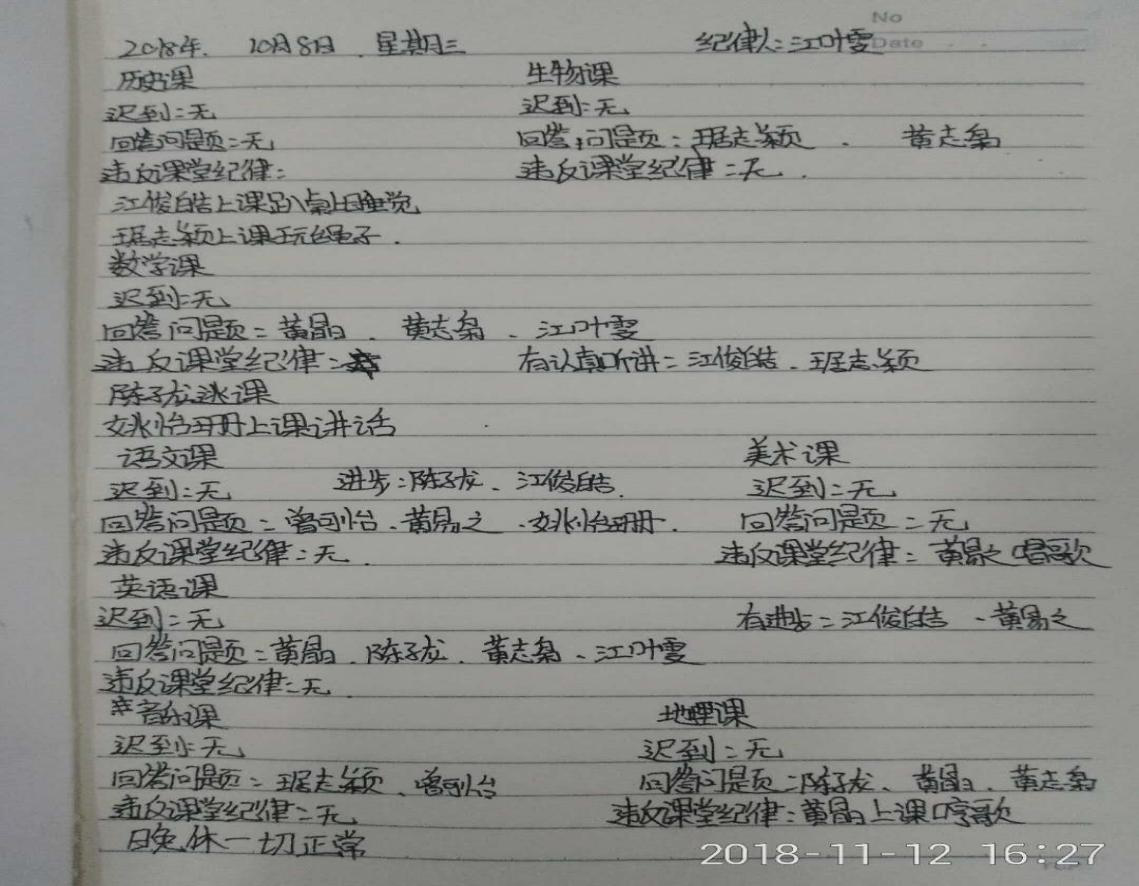 No
Date
2018年. 10月8日 星期三 纪律人:江叶雯
历史课 生物课
迟到:无 迟到:无
回答问题:无 回答问题:琚志颖 . 黄志枭
违反课堂纪律: 违反课堂纪律:无.
江俊皓上课趴桌上睡觉
琚志颖上课玩绳子.
数学课
迟到:无
回答问题:黄晶、黄志枭、江叶雯
违反课堂纪律: 有认真听讲:江俊皓、琚志颖
陈子龙逃课
姚怡冊上课讲话
语文课 美术课
迟到:无 进步:陈子龙、江俊皓. 迟到:无
回答问题:曾可怡、黄易之、姚怡冊. 回答问题:无
违反课堂纪律:无. 违反课堂纪律:黄易之唱歌
英语课
迟到:无 有进步:江俊皓、黄易之
回答问题:黄晶、陈子龙、黄志枭、江叶雯
违反课堂纪律:无.
音乐课 地理课
迟到:无 迟到:无
回答问题:琚志颖、曾可怡 回答问题:陈子龙、黄晶、黄志枭
违反课堂纪律:无 违反课堂纪律:黄晶上课哼歌
晚休一切正常
2018-11-12 16:27